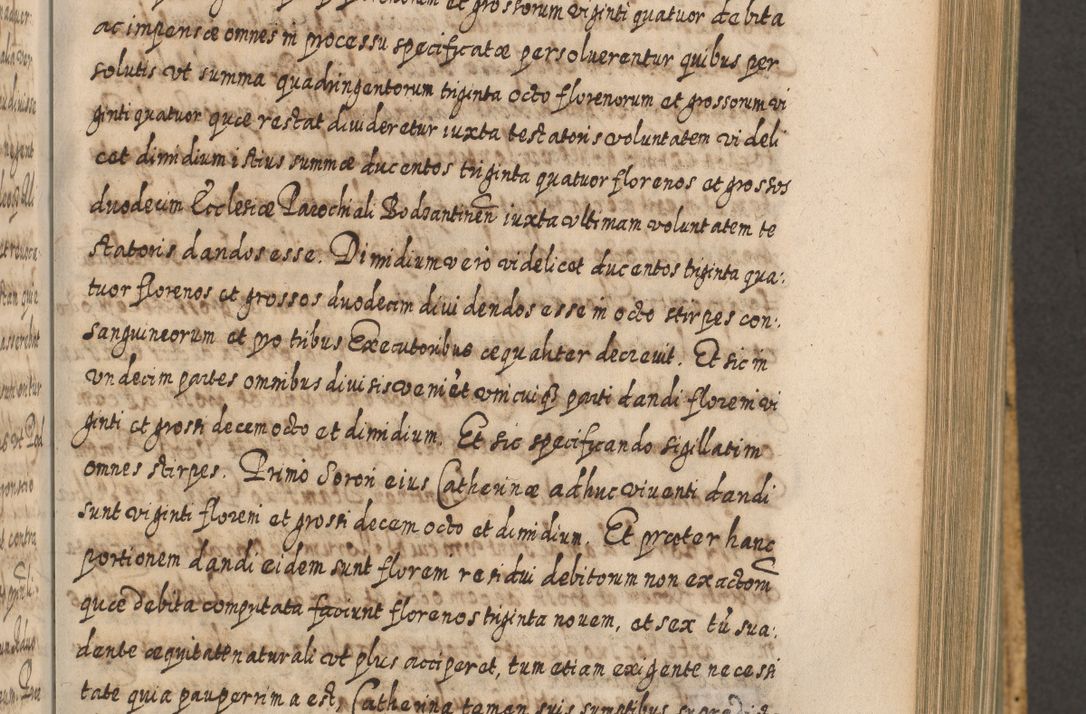 et grossorum viginti quatuor debita
ac impensæ omnes in processu specificatæ persoluerentur quibus per
solutis vt summa quadringentorum triginta octo florenorum et grossorum vi
ginti quatuor quæ restat diuideretur iuxta testatoris voluntatem videli
cet dimidium istius summæ ducentos triginta quatuor florenos et grossos
duodecim Ecclesiæ Parochiali Bodzantinen̄ iuxta vltimam voluntatem te
statoris dandos esse. Dimidium vero videlicet ducentos triginta qua:
tuor florenos et grossos duodecim diuidendos esse in octo stirpes con:
sanguineorum et pro tribus Executoribus æqualiter decreuit. Et sic in
vndecim partes omnibus diuisis veniet vnicuiqꝫ parti dandi floreni vi
ginti et grossi decem octo et dimidium. Et sic specificando sigillatim
omnes stirpes. Primo Sorori eius Catherinæ adhuc viuenti dandi
sunt viginti floreni et grossi decem octo et dimidium. Et præter hanc
portionem dandi eidem sunt floreni residui debitorum non exactorū
quæ debita computata faciunt florenos triginta nouem, et sex tū sua:
dente æquitate naturali vt plus acciperet, tum etiam exigente necessi
tate quia pauperrima est, Catherina tamen suis sumptibus